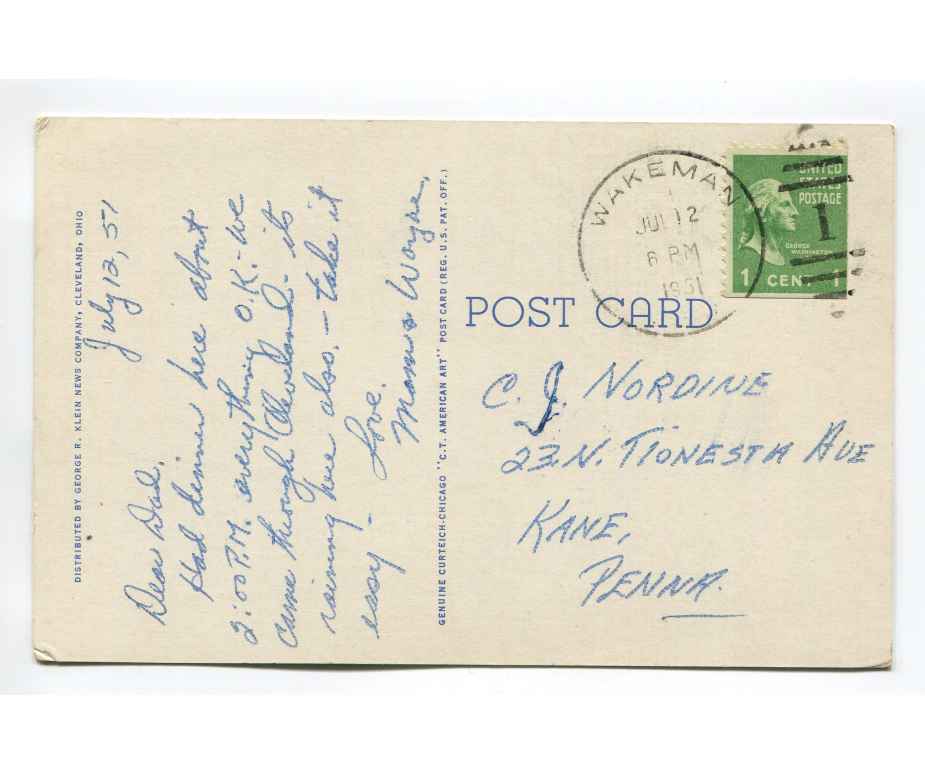 DISTRIBUTED BY GEORGE R. KLEIN NEWS COMPANY, CLEVELAND, OHIO
July 12, 51
Dear Dad.
Had dinner here about
2:00 P.M. everything O.K. - we
came through Cleveland - its
raining here also. - take it
easy -
Love.
Mom & Wayne.
GENUINE CURTEICH-CHICAGO "C.T. AMERICAN ART" POST CARD (REG. U.S. PAT. OFF.)
WAKEMAN
JUL 12
6 PM
1951
UNITED
STATES
POSTAGE
GEORGE
WASHINGTON
1 CENT 1
1
POST CARD
C. J. NORDINE
23. N. TIONESTA AVE
KANE,
PENNA.